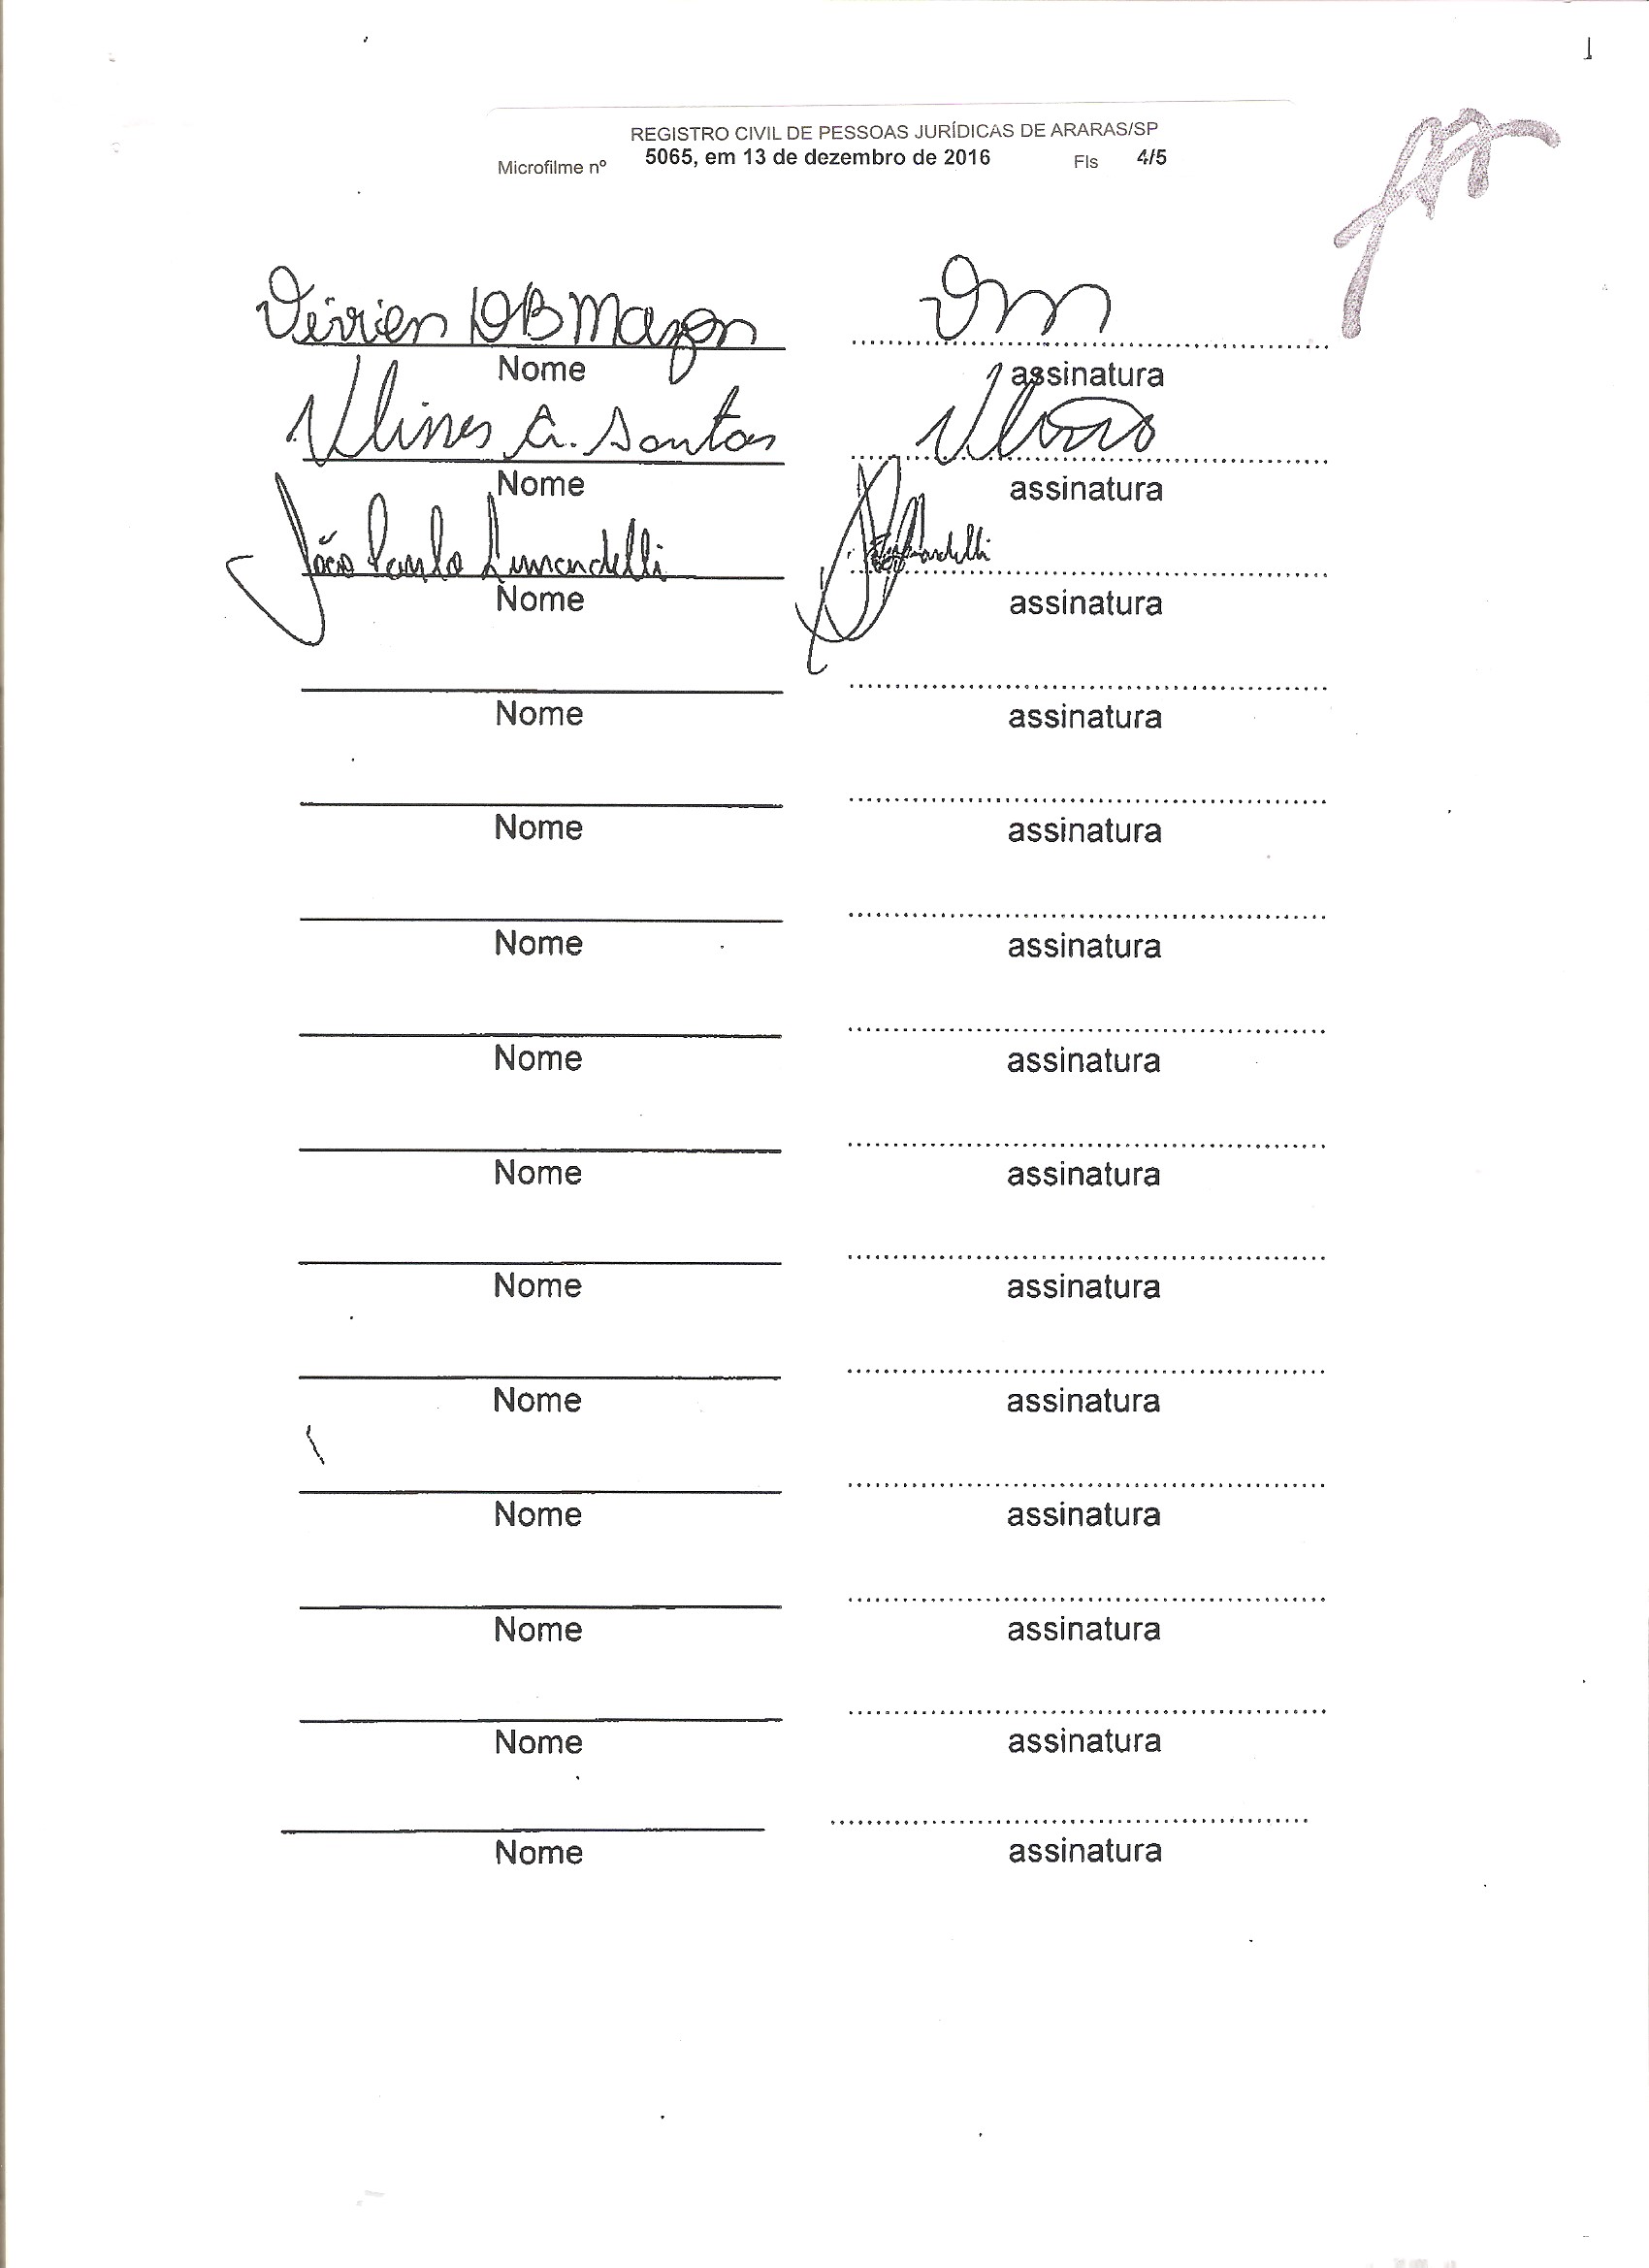 REGISTRO CIVIL DE PESSOAS JURÍDICAS DE ARARAS/SP
Microfilme nº 5065, em 13 de dezembro de 2016 Fls 4/5
DB Mazon
Nome assinatura
Ulisses A. Santos
Nome assinatura
João Paulo
Nome assinatura
Nome assinatura
Nome assinatura
Nome assinatura
Nome assinatura
Nome assinatura
Nome assinatura
Nome assinatura
Nome assinatura
Nome assinatura
Nome assinatura
Nome assinatura